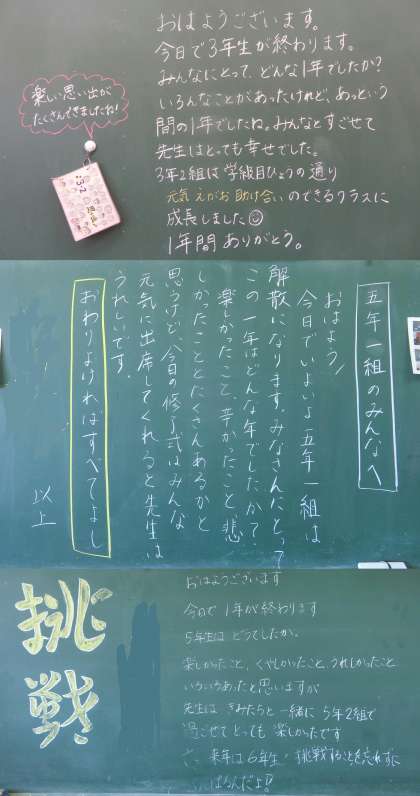 おはようございます。
今日で3年生が終わります。
みんなにとって、どんな1年でしたか?
いろんなことがあったけれど、あっという
間の1年でしたね。みんなとすごせて
先生はとっても幸せでした。
3年2組は学級目ひょうの通り
元気 えがお 助け合いのできるクラスに
成長しました
1年間 ありがとう。
楽しい思い出が
たくさんできましたね!
3-2
五年一組のみんなへ
おはよう!
今日でいよいよ五年一組は
解散になります。みなさんにとって
この一年はどんな年でしたか?
楽しかったこと、辛かったこと、悲
しかったこととたくさんあるかと
思うけど、今日の修了式はみんな
元気に出席してくれると先生は
うれしいです。
おわりよければすべてよし
以上
挑戦
おはようございます
今日で1年が終わります
5年生は どうでしたか。
楽しかったこと、くやしかったこと、うれしかったこと
いろいろあったと思いますが
先生は、きみたちと一緒に 5年2組で
過ごせて とっても 楽しかったです
来年は6年生! 挑戦することを忘れずに
がんばるんだよ!!